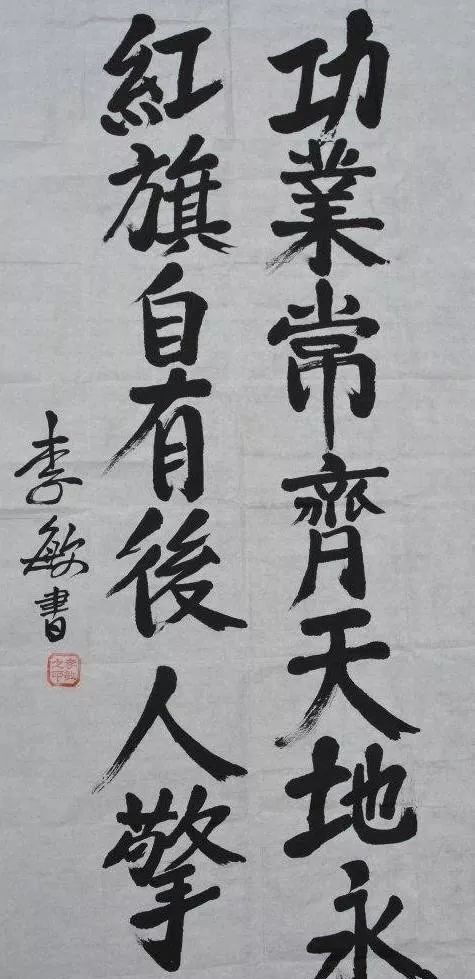 功業常齊天地永
紅旗自有後人擎
李敏書